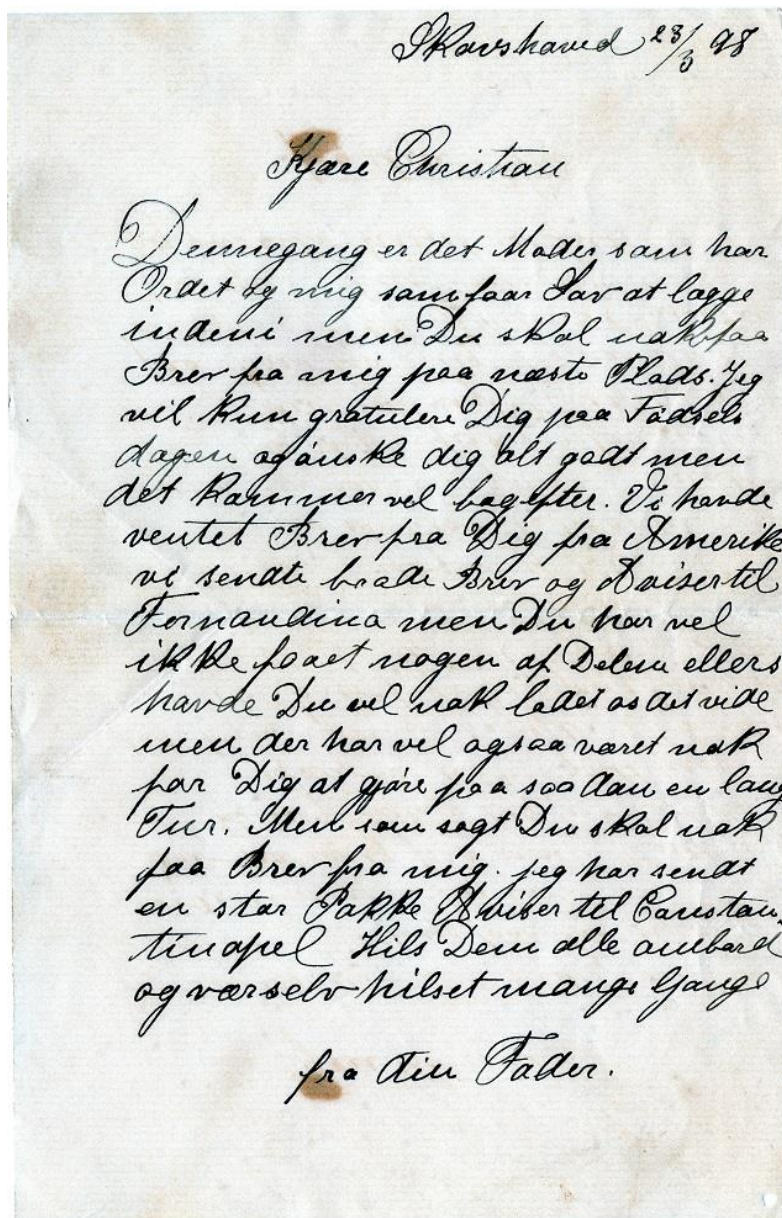 Skovshoved 28/3 98
Kjære Christian
Dennegang er det Moder som har
Ordet og mig som faar Lov at lægge
indeni men Du skal nok faa
Brev fra mig paa næste Plads. Jeg
vil kun gratulere Dig paa Fødsels
dagen og ønske dig alt godt men
det kommer vel bagefter. Vi havde
ventet Brev fra Dig fra Amerika
vi sendte baade Brev og Aviser til
Fernandina men Du har vel
ikke faaet nogen af Delene ellers
havde Du vel nok ladet os det vide
men der har vel ogsaa været nok
for Dig at gjøre paa saadan en lang
Tur. Men som sagt Du skal nok
faa Brev fra mig. jeg har sendt
en stor Pakke Aviser til Constan-
tinopel Hils Dem alle ombord
og vær selv hilset mange Gange
fra din Fader.